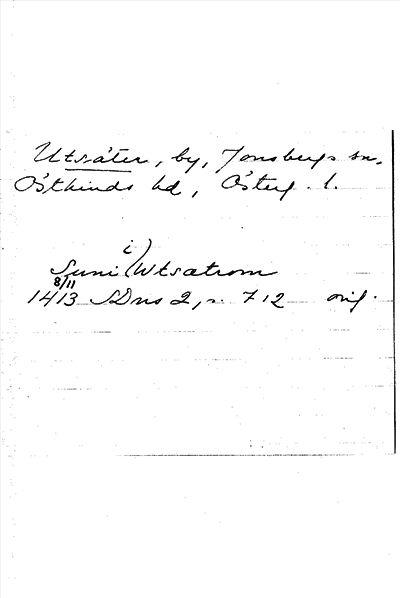 Utsäter, by, Jonsbergs sn,
Östkinds hd, Österg. l.
i)
Suni Wtsatrom
8/11
1413 SDns 2, s. 712 orig.